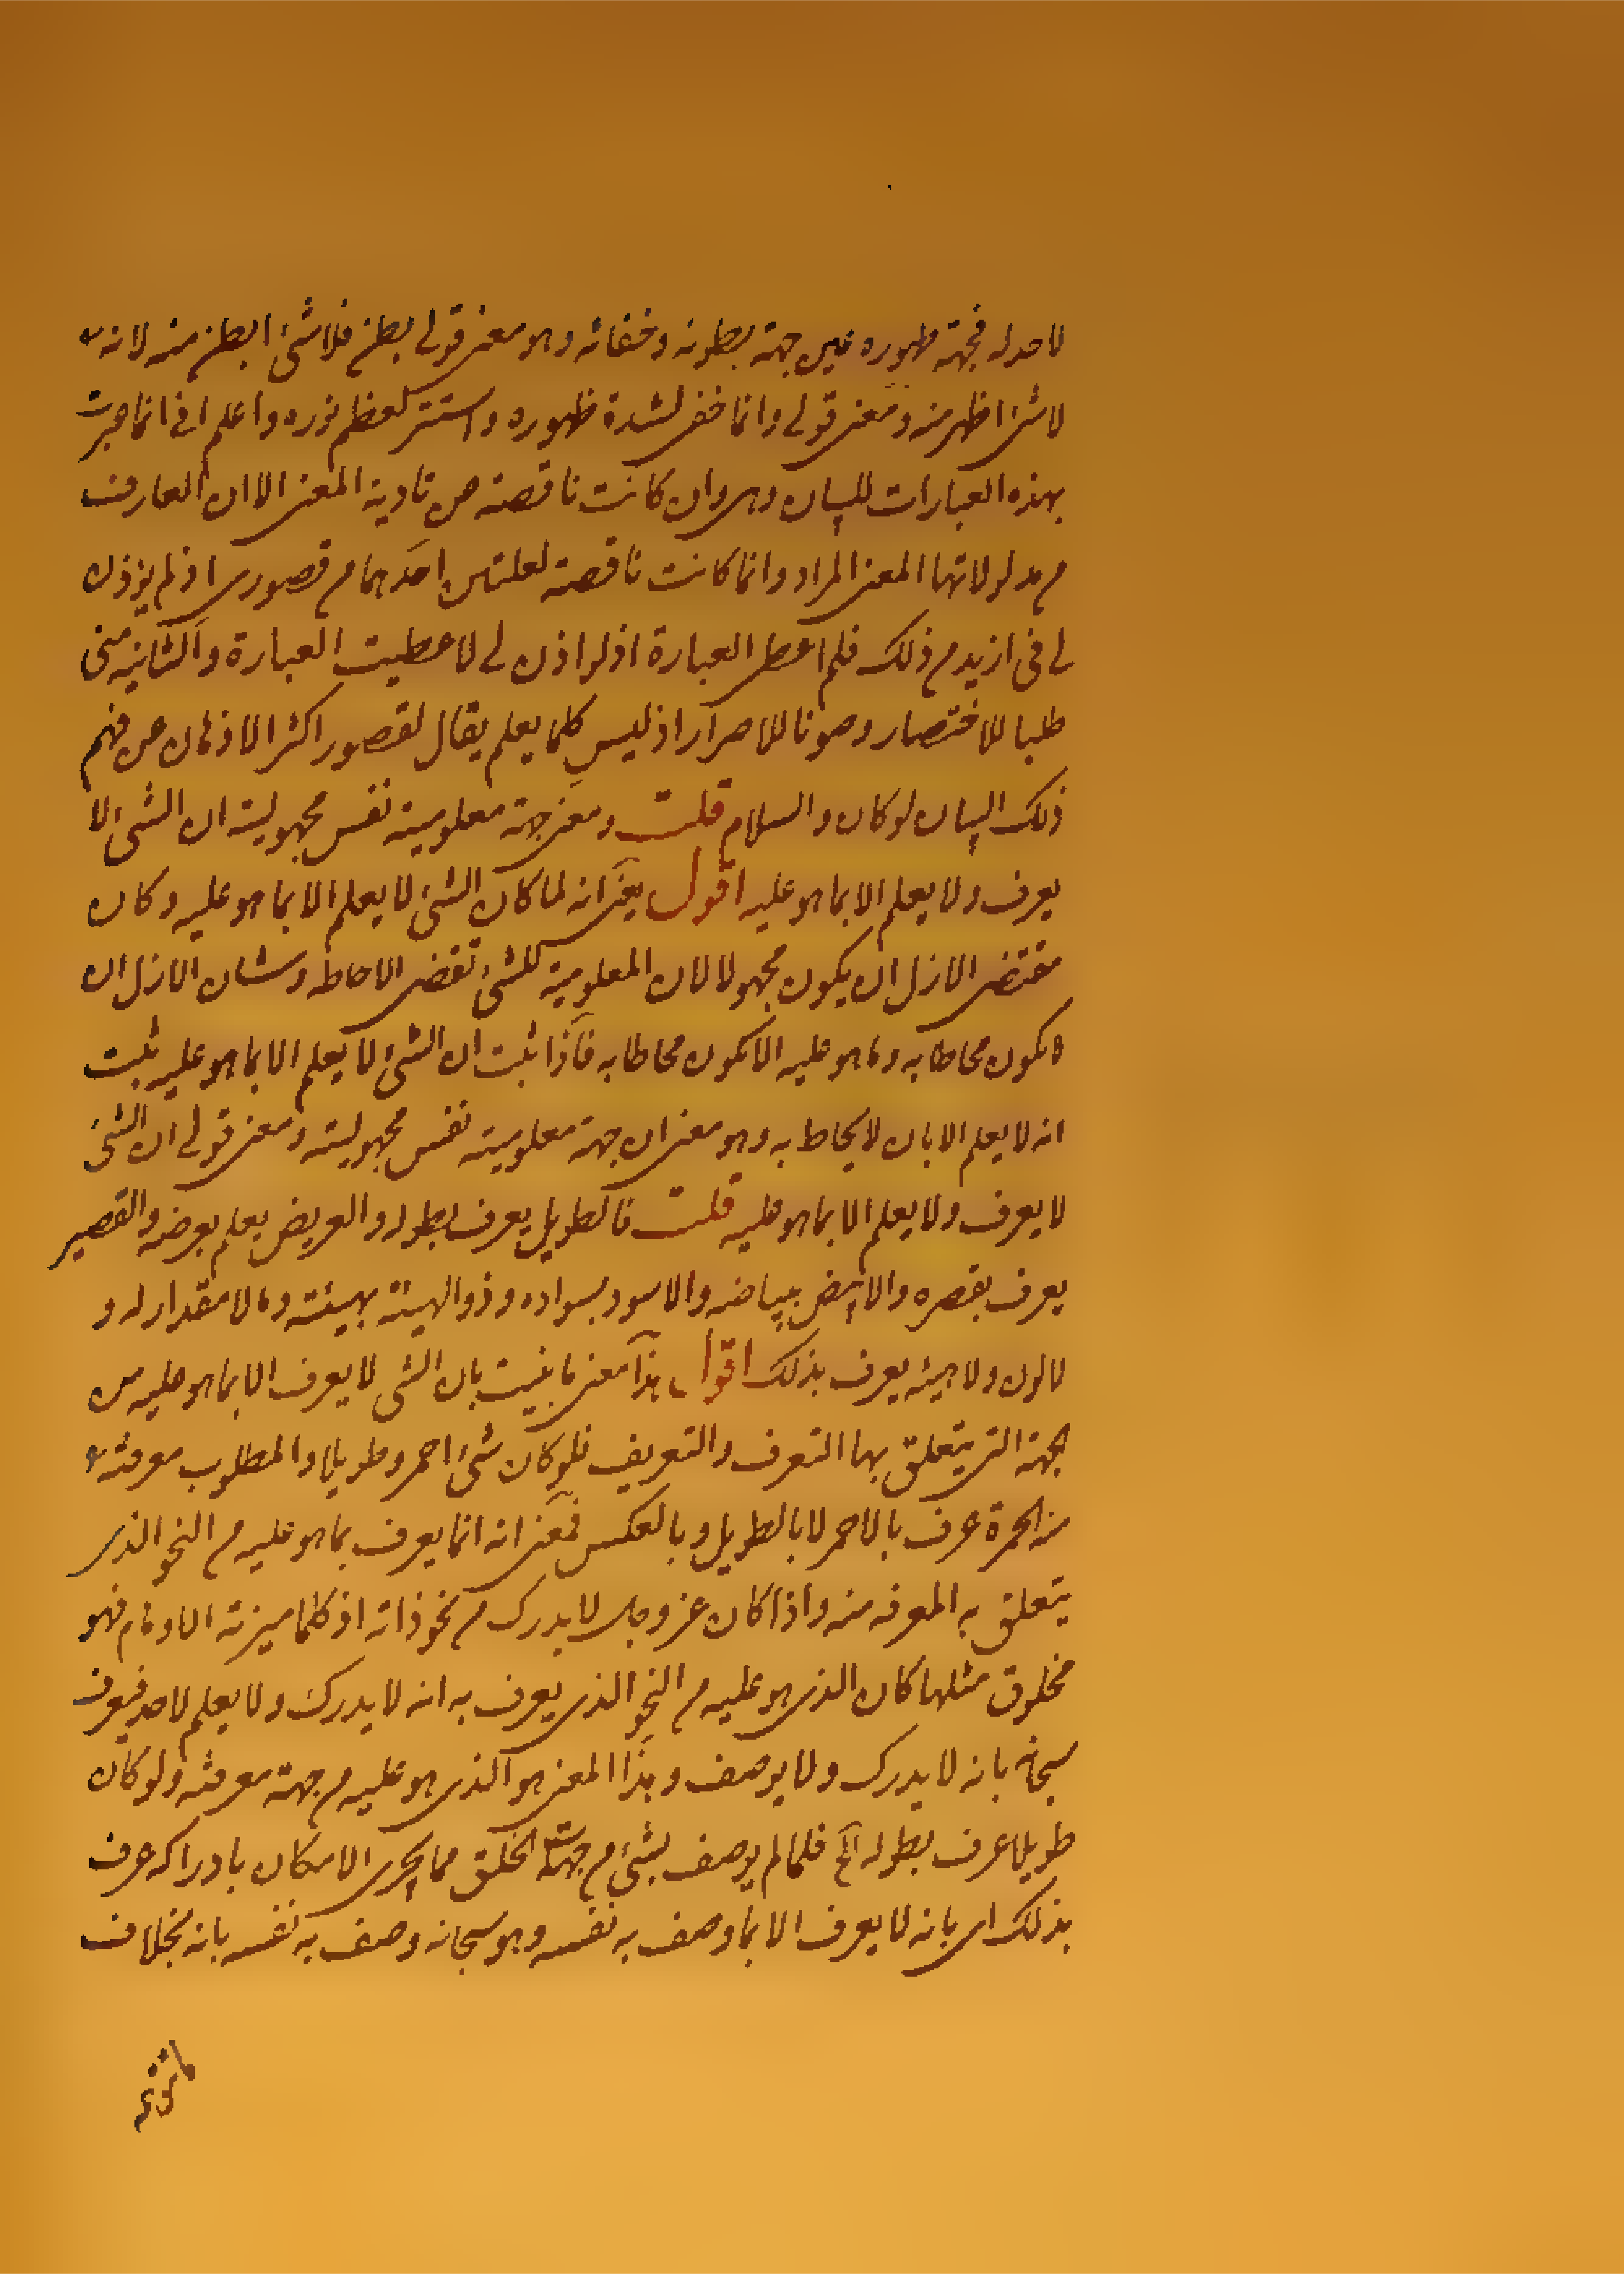 لا حد له فجهة ظهوره عين جهة بطونه وخفائه وهو معنى قولي بطن فلا شئ ابطن منه لانه
لا شئ اظهر منه ومعنى قولي وانما خفى لشدة ظهوره واستتر لعظم نوره واعلم اني انما عبرت
بهذه العبارات للبيان وهى وان كانت ناقصة عن تادية المعنى الا ان العارف
من مدلولاتها المعنى المراد وانما كانت ناقصة لعلتين احدهما من قصورى اذ لم يؤذن
لي في ازيد من ذلك فلم اعط العبارة اذ لو اذن لي لاعطيت العبارة والثانية منى
طلبا للاختصار وصونا للاسرار اذ ليس كلما يعلم يقال لقصور اكثر الاذهان عن فهم
ذلك البيان لو كان والسلام قلت ومعنى جهة معلوميته نفس مجهوليته ان الشئ لا
يعرف ولا يعلم الا بما هو عليه اقول يعنى انه لما كان الشئ لا يعلم الا بما هو عليه وكان
مقتضى الازل ان يكون مجهولا لان المعلومية للشئ تقضى الاحاطة وشان الازل ان
لا يكون محاطا به وما هو عليه الا يكون محاطا به فاذا ثبت ان الشئ لا يعلم الا بما هو عليه ثبت
انه لا يعلم الا بان لا يحاط به وهو معنى ان جهة معلوميته نفس مجهوليته ومعنى قولي ان الشئ
لا يعرف ولا يعلم الا بما هو عليه قلت فالطويل يعرف بطوله والعريض يعلم بعرضه والقصير
يعرف بقصره والابيض ببياضه والاسود بسواده وذو الهيئة بهيئته وما لا مقدار له و
لا لون ولا هيئة يعرف بذلك اقول هذا معنى ما بنيت بان الشئ لا يعرف الا بما هو عليه من
الجهة التى يتعلق بها التعرف والتعريف فلو كان شئ احمر وطويلا والمطلوب معرفته
من الحمرة عرف بالاحمر لا بالطويل وبالعكس فمعنى انه انما يعرف بما هو عليه من النحو الذى
يتعلق به المعرفة منه واذا كان عز وجل لا يدرك من نحو ذاته اذ كلما ميزته الاوهام فهو
مخلوق مثلها كان الذى هو عليه من النحو الذى يعرف به انه لا يدرك ولا يعلم لاحد فيعرف
سبحانه بانه لا يدرك ولا يوصف وهذا المعنى هو الذى هو عليه من جهة معرفته ولو كان
طويلا عرف بطوله الخ فلما لم يوصف بشئ من جهات الخلق مما يجرى الامكان بادراكه عرف
بذلك اى بانه لا يعرف الا بما وصف به نفسه وهو سبحانه وصف به نفسه بانه بخلاف